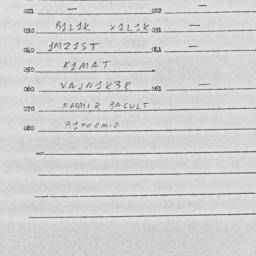 021 — 022 —
030 B1L1K Y1L1K 031 —
040 1MZ1ST 041 —
050 K1MAT
060 VAJN1K3R 061 —
070 FARMIR BACULT
080